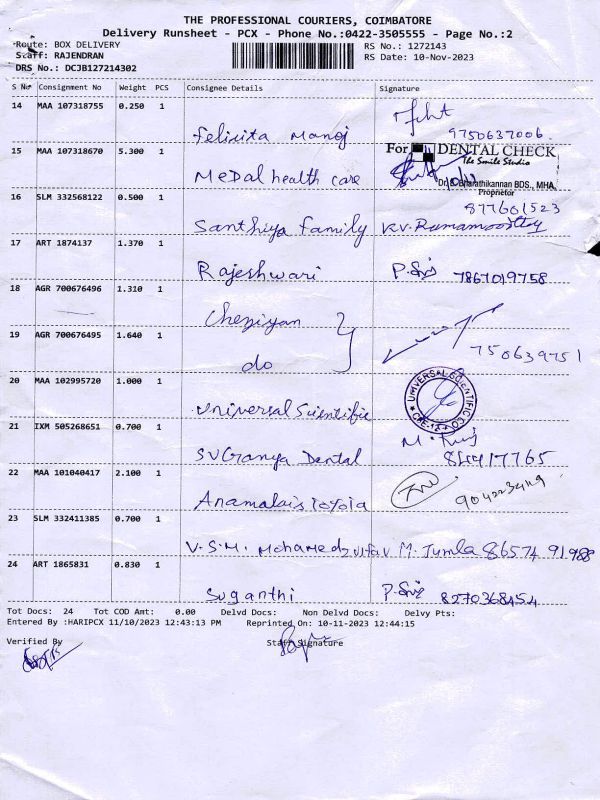 THE PROFESSIONAL COURIERS, COIMBATORE
Delivery Runsheet - PCX - Phone No.:0422-3505555 - Page No.:2
Route: BOX DELIVERY
RS No.: 1272143
Staff: RAJENDRAN
RS Date: 10-Nov-2023
DRS No.: DCJB127214302
S No Consignment No Weight PCS Consignee Details Signature
14 MAA 107318755 0.250 1 Felicita Manoj 9750637006
15 MAA 107318670 5.300 1 Medal health care
For DENTAL CHECK
The Smile Studio
Bharathikannan BDS., MHA,
Proprietor
16 SLM 332568122 0.500 1 Santhiya family 877601523
17 ART 1874137 1.370 1 Rajeshwari 7867019758
18 AGR 700676496 1.310 1 Chezhiyan
19 AGR 700676495 1.640 1 do 750639751
20 MAA 102995720 1.000 1 Universal Scientific
UNIVERSAL SCIENTIFIC CO
21 IXM 505268651 0.700 1 Dental
22 MAA 101040417 2.100 1
23 SLM 332411385 0.700 1 V.S.M. M. Jumla
24 ART 1865831 0.830 1 Suganthi 8270368454
Tot Docs: 24 Tot COD Amt: 0.00 Delvd Docs: Non Delvd Docs: Delvy Pts:
Entered By :HARIPCX 11/10/2023 12:43:13 PM Reprinted On: 10-11-2023 12:44:15
Verified By Staff Signature